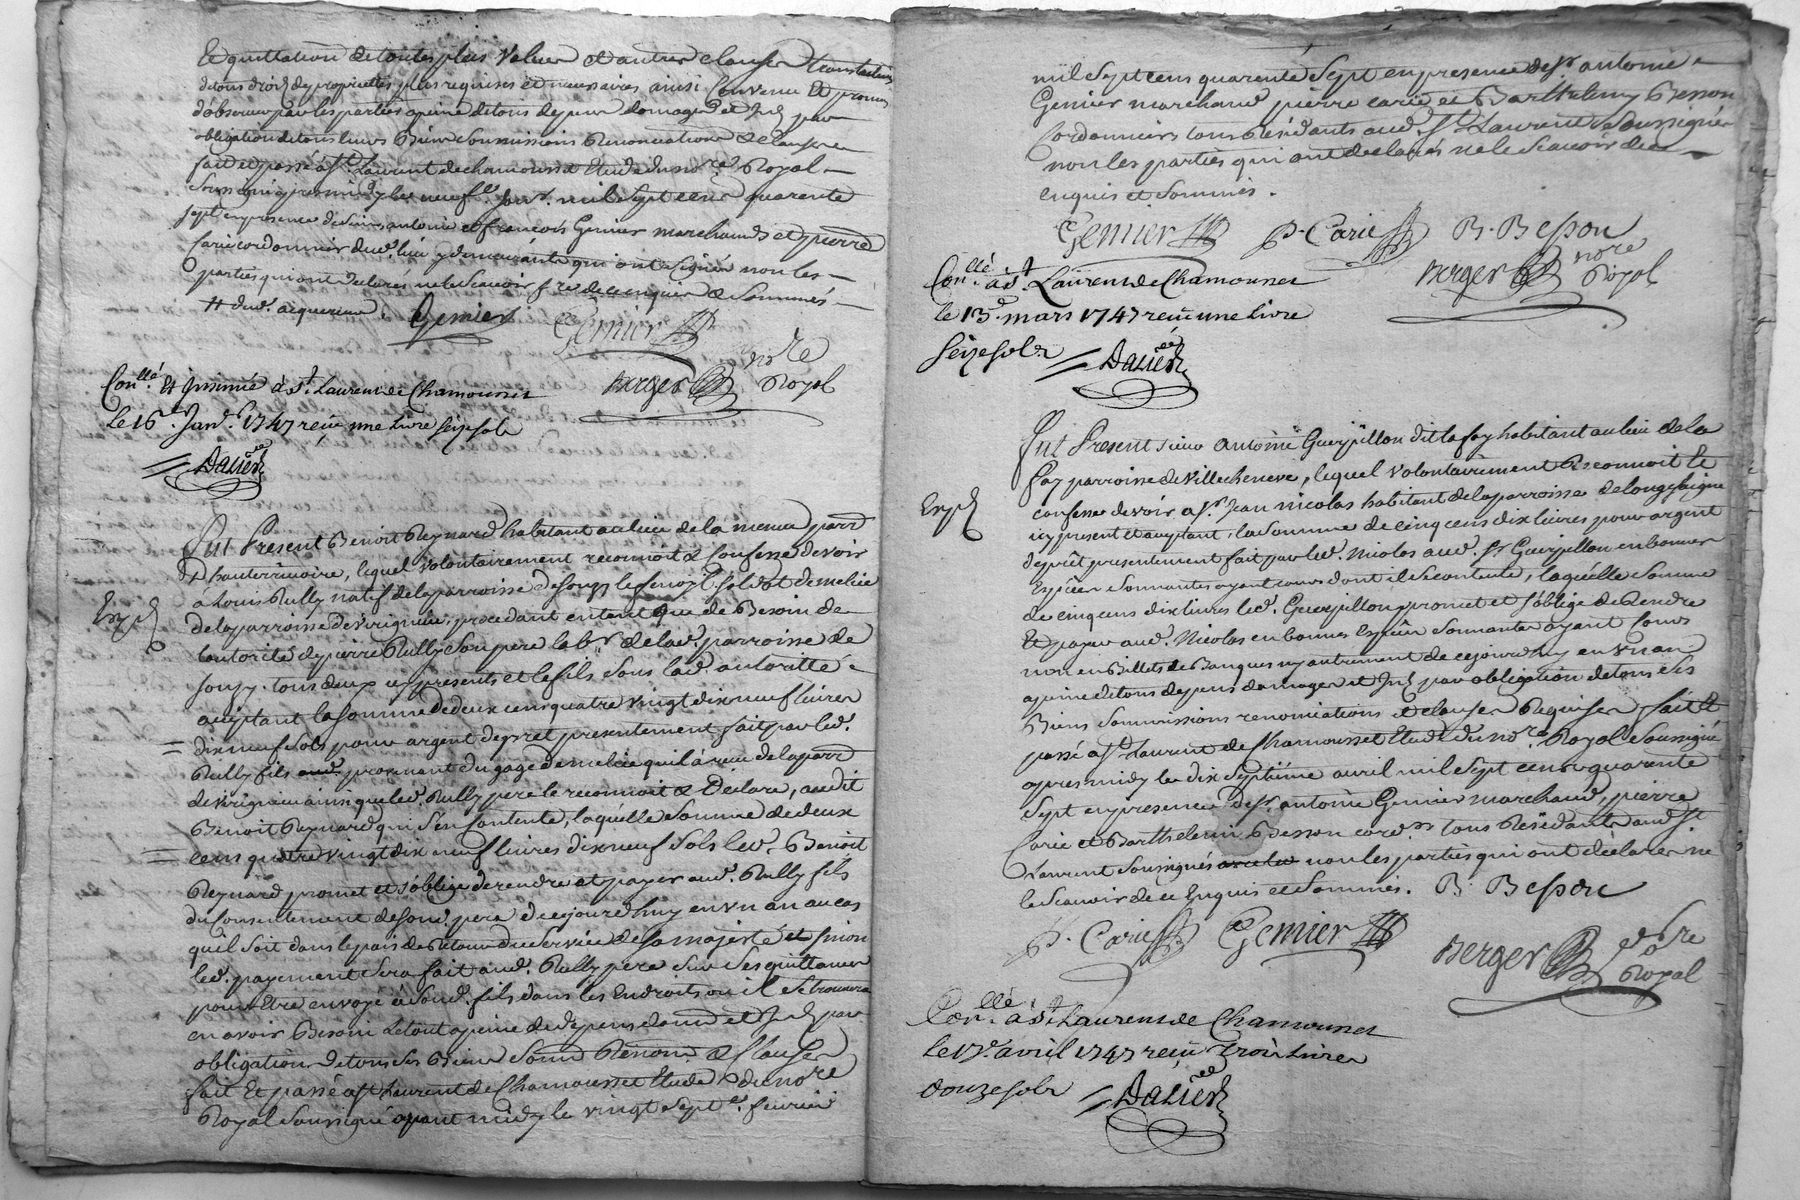 Et quittation de toutes plus valeur et autres clauses translatives
de tous droits de proprietté plus requises et necessaires ainsi convenu Et promis
d'observer par les parties a peine de tous depens domages et Int par
obligation de tous leurs Biens soumissions Renonciations & clauses
fait et passé a St Laurent de chamousset Etude du nore Royal
soussigné apres midy le neufe Janr mil sept cens quarente
sept en presence de sieurs antoine et françois Gemier marchands et pierre
Carie cordonnier dud. lieu y demeurants qui ont signés non les
parties qui ont declarés ne le scavoir f re de ce enquier & sommés
# dud. acquereur.
Gemier Gemier
Berger nore Royal
Conllé. Et Insinué à St. Laurens de Chamousset
Le 16e. Janv. 1747 reçu une livre seize sols
Dalier
Fut Present Benoit Reynard habitant au lieu de la menue parr
D hauterivoire, lequel volontairement reconnoit & confesse devoir
à Louis Rully natif de la parroisse de souzy soldat de melice
Exp
de la parroisse de virigneu, procedant entant que de Besoin de
l'autorité de pierre Rully son pere labr. de lad. parroisse de
souzy. tous deux icy presents et le fils sous lad autoritté
aceptant la somme de deux cens quatre vingt dix neuf livres
dix neuf sols pour argent de pret presentement fait par led.
Rully fils provenant du gage de melice quil à reçu de la parr
de virigneu ainsi que led. Rully pere le reconnoit & Déclare, audit
Benoit Reynard qui s'en contente, laquelle somme de deux
cens quatre vingt dix neuf livres dix neuf sols led. Benoit
Reynard promet et s'oblige de rendre et payer aud. Rully fils
du consentement de sond. pere de ce jourd'huy en un an au cas
qu'il soit dans le pais de Retour du service de sa majesté et sinon
led. payement sera fait aud. Rully pere sur ses quittances
pour Etre envoyé à sond. fils dans les Endroits ou il se trouvera
en avoir Besoin Le tout a peine de depens dom et Int par
obligation de tous ses Biens soum Renon & clauses
fait Et passé a St Laurent de Chamousset Etude du nore
Royal soussigné avant midy le vingt septe. fevrier
mil sept cens quarente sept en presence de sr antoine
Gemier marchand pierre carie et Barthelemy Besson
Cordonniers tous Résidants aud. St Laurent soussignés
non les parties qui ont declarés ne le scavoir de ce
enquis et sommés.
Gemier P. Carie B. Besson
Berger nore Royal
Conllé. à St. Laurens de Chamousset
le 13e. mars 1747 reçu une livre
seize sols
Dalier
Fut Present sieur antoine Guerpillon dit lafay habitant au lieu de la
fay parroisse de villecheneve, lequel volontairement Reconnoit et
Exp
confesse devoir a sr. Jean nicolas habitant de la parroisse de longessaigne
icy present et aceptant, la somme de cinq cens dix livres pour argent
de prêt presentement fait par led. Nicolas aud. sr Guerpillon en bonnes
Espèces sonnantes ayant cours dont il se contente, laquelle somme
de cinq cens dix livres led. Guerpillon promet et s'oblige de Rendre
Et payer aud. Nicolas en bonnes Espèces sonnantes ayant cours
non en Billets de Banques ny autrement de ce jourd'huy en un an
a peine de tous depens domages et Int par obligation de tous ses
Biens soumissions renonciations et clauses Requises fait Et
passé a St Laurent de Chamousset Etude du nore Royal soussigné
apres midy le dix septième avril mil sept cens quarente
sept en presence de sr. antoine Gemier marchand, pierre
Carie et Barthelemi Besson cordrs tous Résidants aud St
Laurent soussignés non les parties qui ont déclarés ne
le scavoir de ce Enquis et sommés.
B. Besson
P. Carie Gemier
Berger nore Royal
Conllé. à St Laurens de Chamousset
le 17e. avril 1747 reçu trois livres
douze sols
Dalier